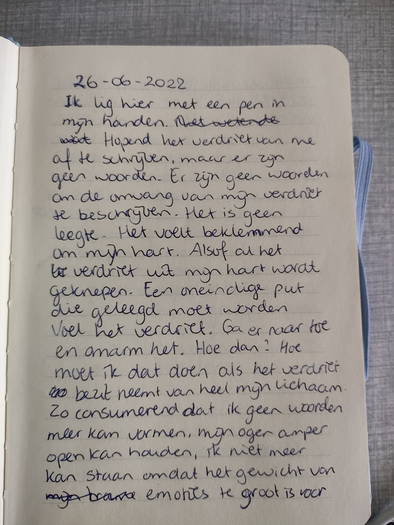 26-06-2022
Ik lig hier met een pen in
mijn handen. Niet wetende
wat Hopend het verdriet van me
af te schrijven, maar er zijn
geen woorden. Er zijn geen woorden
om de omvang van mijn verdriet
te beschrijven. Het is geen
leegte. Het voelt beklemmend
om mijn hart. Alsof al het
verdriet uit mijn hart wordt
geknepen. Een oneindige put
die geleegd moet worden
Voel het verdriet. Ga er naar toe
en omarm het. Hoe dan? Hoe
moet ik dat doen als het verdriet
bezit neemt van heel mijn lichaam.
Zo consumerend dat ik geen woorden
meer kan vormen, mijn ogen amper
open kan houden, ik niet meer
kan staan omdat het gewicht van
mijn emoties te groot is voor